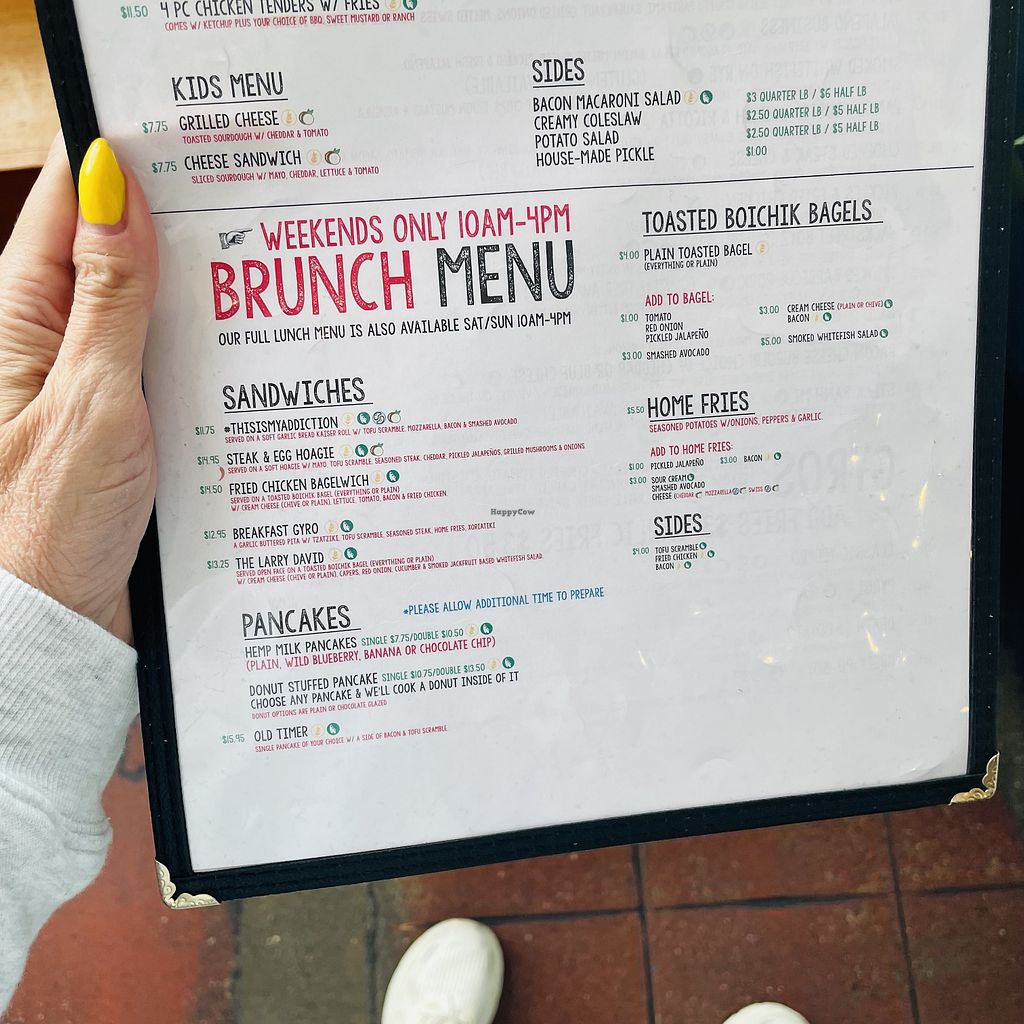 $11.50 4 PC CHICKEN TENDERS W/ FRIES
COMES W/ KETCHUP PLUS YOUR CHOICE OF BBQ, SWEET MUSTARD OR RANCH
KIDS MENU
$7.75 GRILLED CHEESE
TOASTED SOURDOUGH W/ CHEDDAR & TOMATO
$7.75 CHEESE SANDWICH
SLICED SOURDOUGH W/ MAYO, CHEDDAR, LETTUCE & TOMATO
SIDES
BACON MACARONI SALAD $3 QUARTER LB / $6 HALF LB
CREAMY COLESLAW $2.50 QUARTER LB / $5 HALF LB
POTATO SALAD $2.50 QUARTER LB / $5 HALF LB
HOUSE-MADE PICKLE $1.00
WEEKENDS ONLY 10AM-4PM
BRUNCH MENU
OUR FULL LUNCH MENU IS ALSO AVAILABLE SAT/SUN 10AM-4PM
SANDWICHES
$11.75 #THISISMYADDICTION
SERVED ON A SOFT GARLIC BREAD KAISER ROLL W/ TOFU SCRAMBLE, MOZZARELLA, BACON & SMASHED AVOCADO
$14.95 STEAK & EGG HOAGIE
SERVED ON A SOFT HOAGIE W/ MAYO, TOFU SCRAMBLE, SEASONED STEAK, CHEDDAR, PICKLED JALAPEÑOS, GRILLED MUSHROOMS & ONIONS
$14.50 FRIED CHICKEN BAGELWICH
SERVED ON A TOASTED BOICHIK BAGEL (EVERYTHING OR PLAIN)
W/ CREAM CHEESE (CHIVE OR PLAIN), LETTUCE, TOMATO, BACON & FRIED CHICKEN
$12.95 BREAKFAST GYRO
A GARLIC BUTTERED PITA W/ TZATZIKI, TOFU SCRAMBLE, SEASONED STEAK, HOME FRIES, XORIATIKI
$13.25 THE LARRY DAVID
SERVED OPEN FACE ON A TOASTED BOICHIK BAGEL (EVERYTHING OR PLAIN)
W/ CREAM CHEESE (CHIVE OR PLAIN), CAPERS, RED ONION, CUCUMBER & SMOKED JACKFRUIT BASED WHITEFISH SALAD.
PANCAKES *PLEASE ALLOW ADDITIONAL TIME TO PREPARE
HEMP MILK PANCAKES SINGLE $7.75/DOUBLE $10.50
(PLAIN, WILD BLUEBERRY, BANANA OR CHOCOLATE CHIP)
DONUT STUFFED PANCAKE SINGLE $10.75/DOUBLE $13.50
CHOOSE ANY PANCAKE & WE'LL COOK A DONUT INSIDE OF IT
DONUT OPTIONS ARE PLAIN OR CHOCOLATE GLAZED
$15.95 OLD TIMER
SINGLE PANCAKE OF YOUR CHOICE W/ A SIDE OF BACON & TOFU SCRAMBLE
TOASTED BOICHIK BAGELS
$4.00 PLAIN TOASTED BAGEL
(EVERYTHING OR PLAIN)
ADD TO BAGEL:
$1.00 TOMATO
RED ONION
PICKLED JALAPEÑO
$3.00 SMASHED AVOCADO
$3.00 CREAM CHEESE (PLAIN OR CHIVE)
BACON
$5.00 SMOKED WHITEFISH SALAD
$5.50 HOME FRIES
SEASONED POTATOES W/ONIONS, PEPPERS & GARLIC.
ADD TO HOME FRIES:
$1.00 PICKLED JALAPEÑO $3.00 BACON
$3.00 SOUR CREAM
SMASHED AVOCADO
CHEESE (CHEDDAR MOZZARELLA SWISS)
SIDES
$4.00 TOFU SCRAMBLE
FRIED CHICKEN
BACON
HappyCow